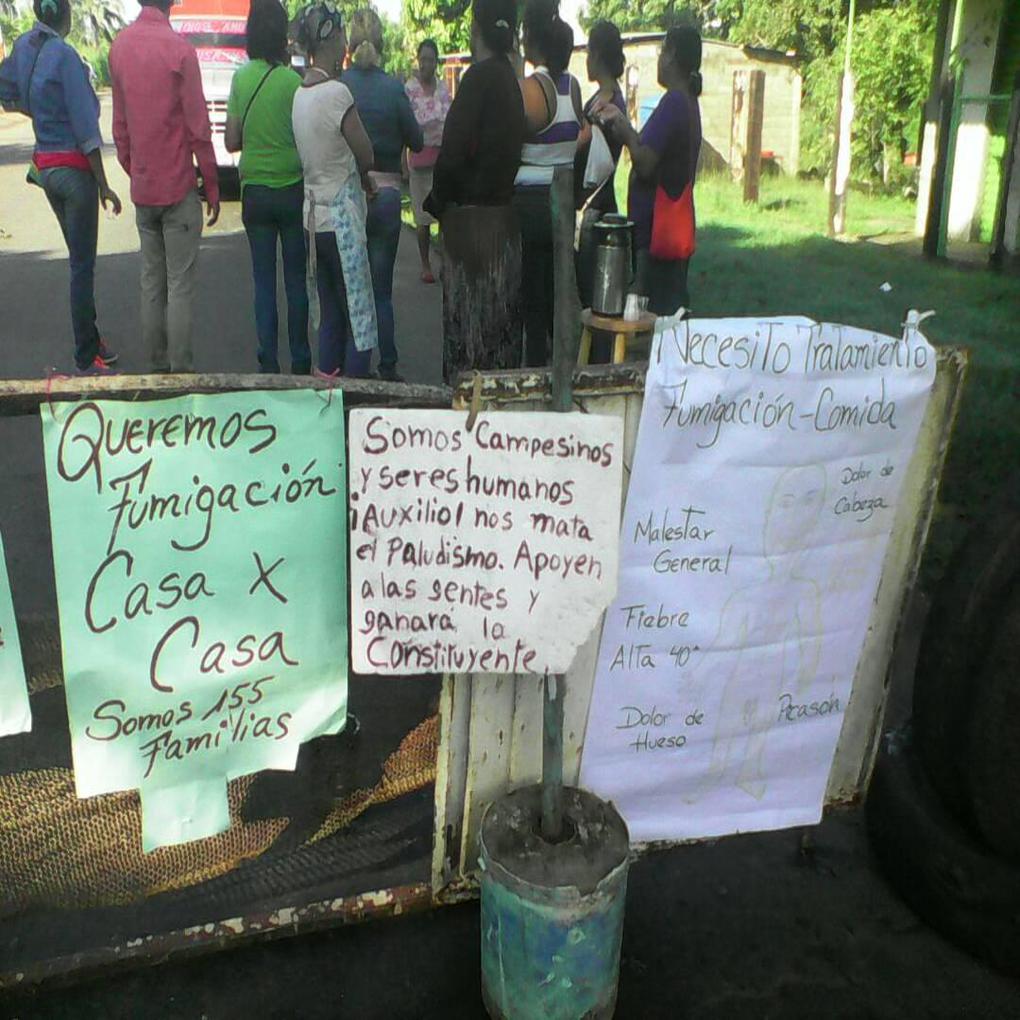 Queremos
Fumigación
Casa x
Casa
Somos 155
Familias
Somos Campesinos
y seres humanos
¡Auxilio! nos mata
el Paludismo. Apoyen
a las gentes y
ganará la
Constituyente
Necesito Tratamiento
Fumigación-Comida
Dolor de
Cabeza
Malestar
General
Fiebre
Alta 40°
Dolor de
Hueso
Picasón